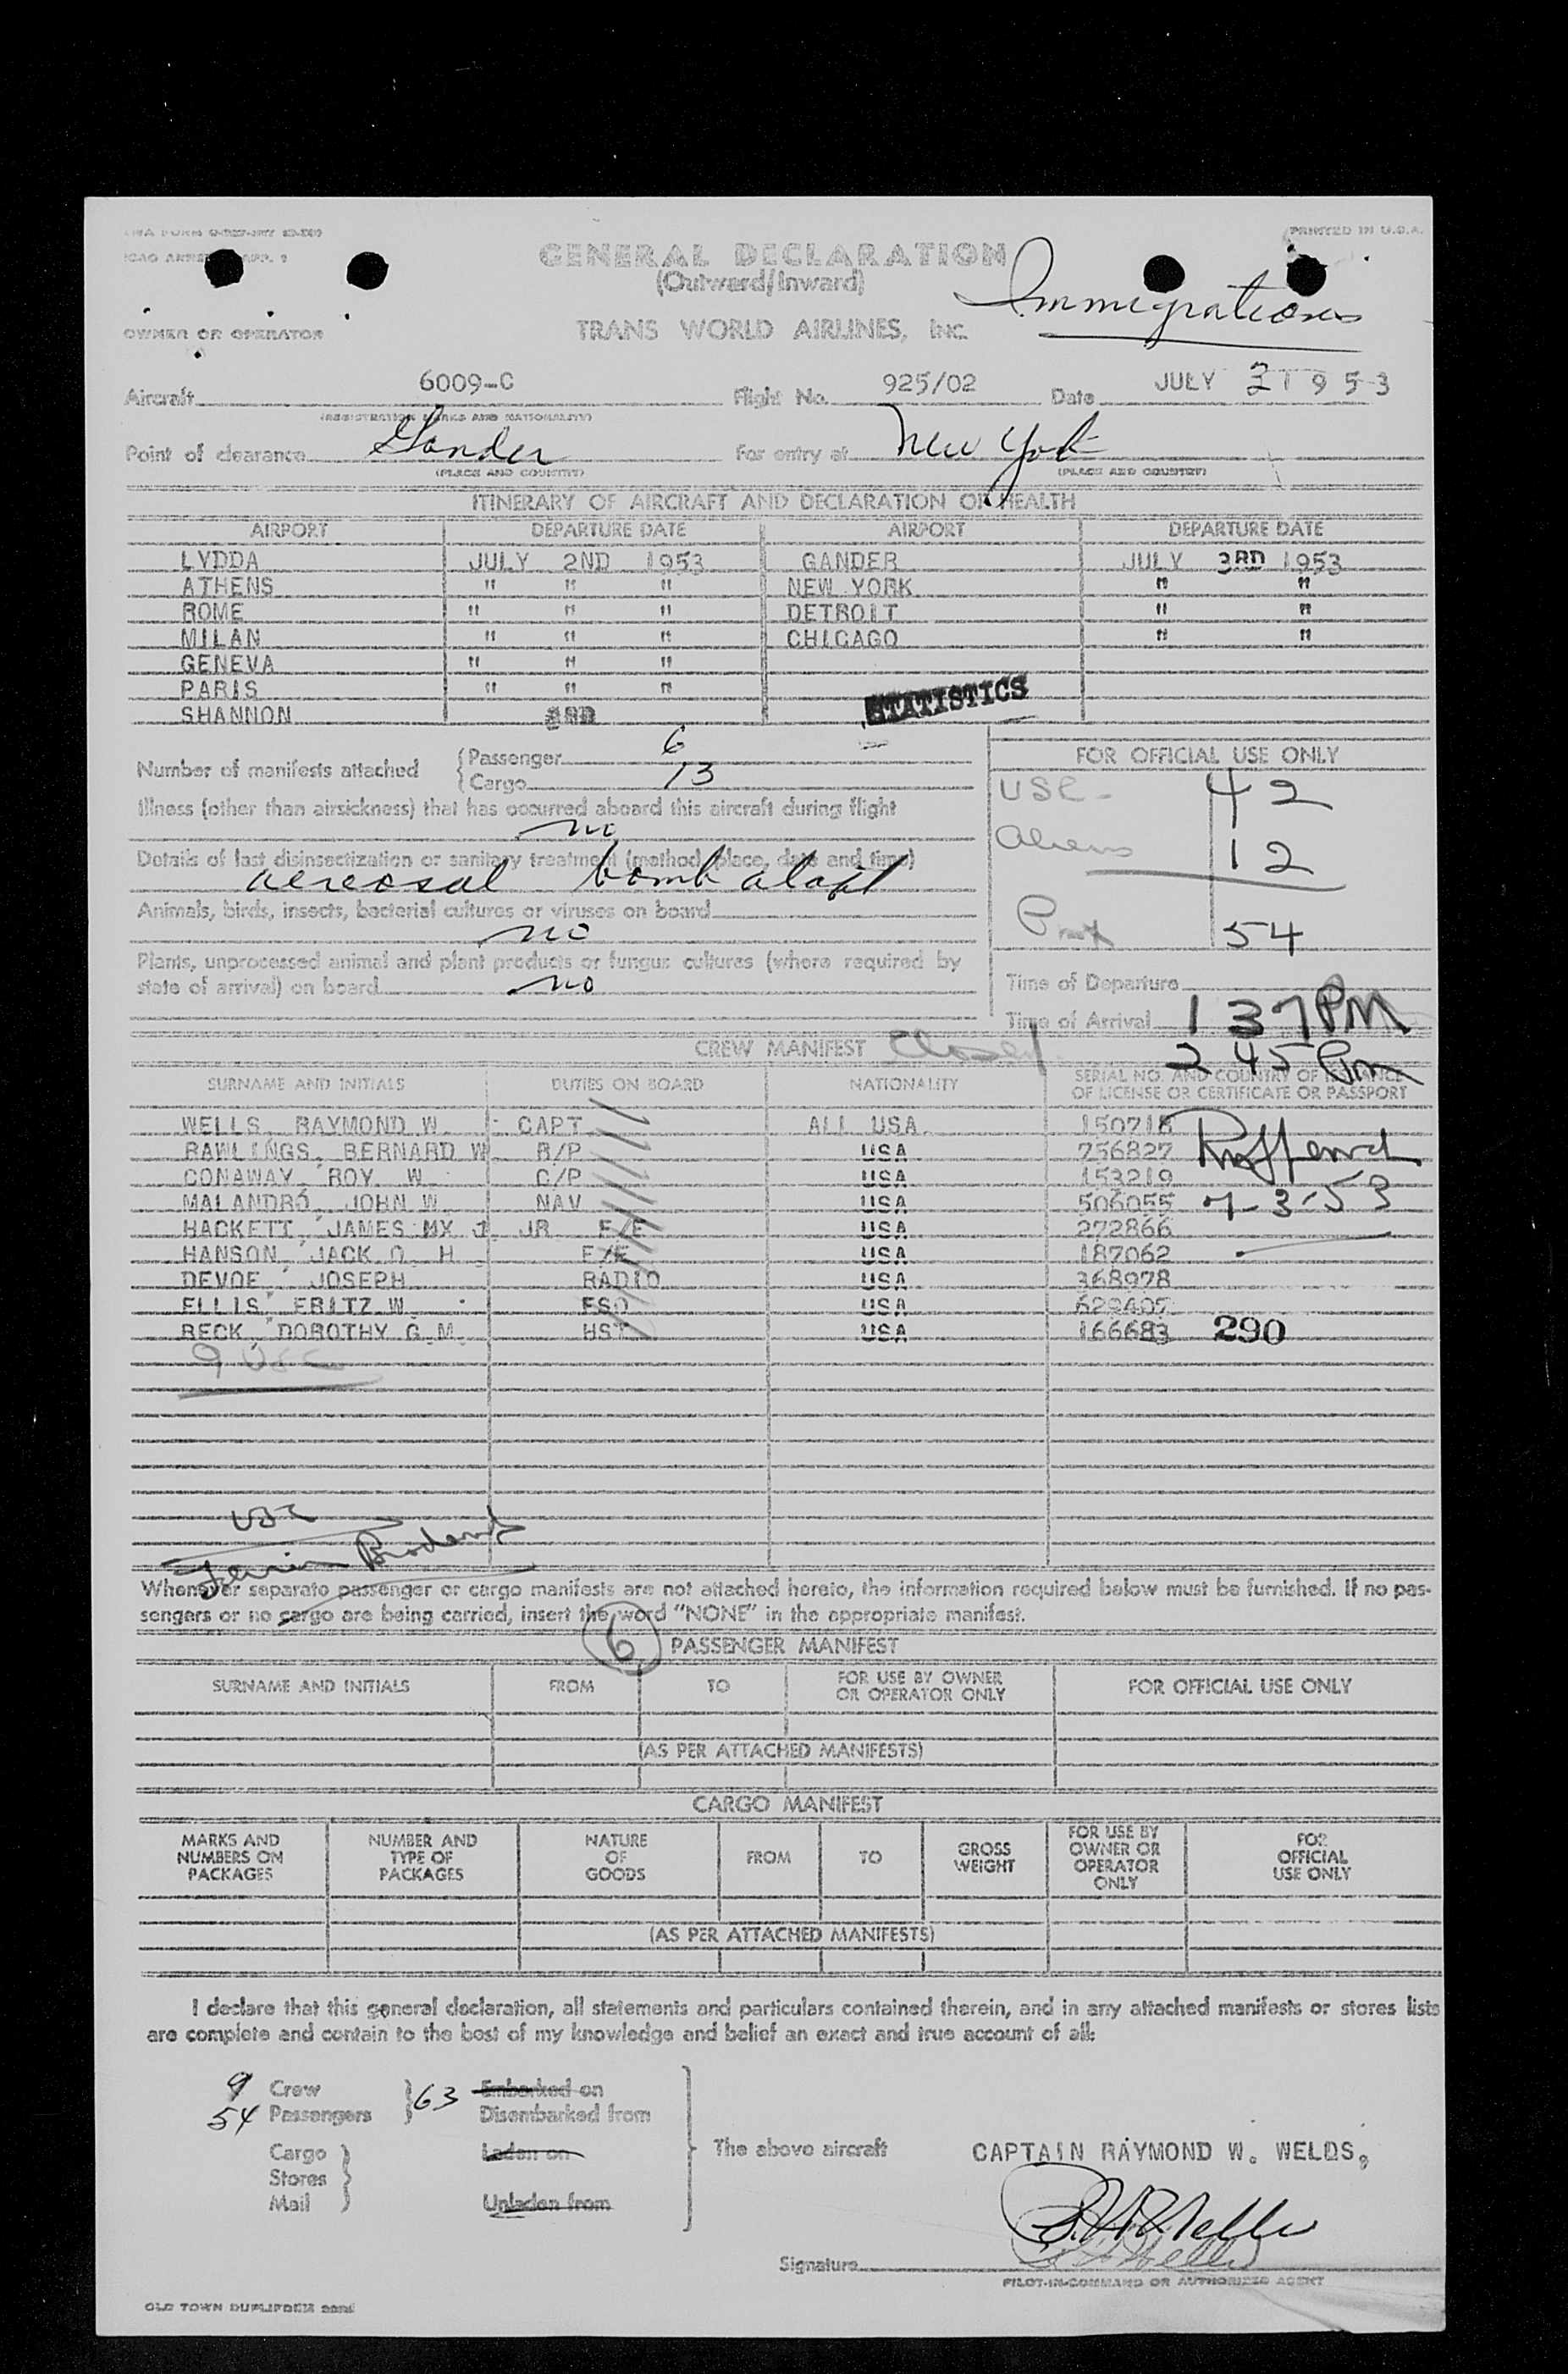 ICAO ANNEX 9 APP. 2
PRINTED IN U.S.A.
GENERAL DECLARATION
(Outward/Inward)
Immigrations
OWNER OR OPERATOR
TRANS WORLD AIRLINES, INC.
Aircraft 6009-C Flight No. 925/02 Date JULY 3 1953
(REGISTRATION MARKS AND NATIONALITY)
Point of clearance Gander For entry at New York
(PLACE AND COUNTRY) (PLACE AND COUNTRY)
ITINERARY OF AIRCRAFT AND DECLARATION OF HEALTH
AIRPORT DEPARTURE DATE AIRPORT DEPARTURE DATE
LYDDA JULY 2ND 1953 GANDER JULY 3RD 1953
ATHENS " " " NEW YORK " "
ROME " " " DETROIT " "
MILAN " " " CHICAGO " "
GENEVA " " "
PARIS " " "
SHANNON 3RD STATISTICS
Number of manifests attached { Passenger 6
Cargo 13
FOR OFFICIAL USE ONLY
USC - 42
Illness (other than airsickness) that has occurred aboard this aircraft during flight
no
Aliens 12
Details of last disinsectization or sanitary treatment (method, place, date and time)
aereosal bomb
Animals, birds, insects, bacterial cultures or viruses on board
no
54
Plants, unprocessed animal and plant products or fungus cultures (where required by
state of arrival) on board no
Time of Departure
Time of Arrival 1 37 PM
CREW MANIFEST Closed 2 45 Pm
SURNAME AND INITIALS DUTIES ON BOARD NATIONALITY SERIAL NO. AND COUNTRY OF ISSUANCE
OF LICENSE OR CERTIFICATE OR PASSPORT
WELLS, RAYMOND W. CAPT ALL USA.
RAWLINGS, BERNARD W R/P USA 756827
CONAWAY, ROY W. C/P USA 153219
MALANDRO, JOHN W. NAV USA 506055 7-3-53
HACKETT, JAMES MX J JR F/E USA 272866
HANSON, JACK O H F/E USA 187062
DEVOE, JOSEPH RADIO USA 368978
ELLIS, FRITZ W FSO USA
BECK, DOROTHY G.M. HST USA 166683 290
9 USC
USC
Whenever separate passenger or cargo manifests are not attached hereto, the information required below must be furnished. If no pas-
sengers or no cargo are being carried, insert the word "NONE" in the appropriate manifest.
6 PASSENGER MANIFEST
SURNAME AND INITIALS FROM TO FOR USE BY OWNER
OR OPERATOR ONLY FOR OFFICIAL USE ONLY
(AS PER ATTACHED MANIFESTS)
CARGO MANIFEST
MARKS AND
NUMBERS ON
PACKAGES NUMBER AND
TYPE OF
PACKAGES NATURE
OF
GOODS FROM TO GROSS
WEIGHT FOR USE BY
OWNER OR
OPERATOR
ONLY FOR
OFFICIAL
USE ONLY
(AS PER ATTACHED MANIFESTS)
I declare that this general declaration, all statements and particulars contained therein, and in any attached manifests or stores lists
are complete and contain to the best of my knowledge and belief an exact and true account of all:
9 Crew } 63 Embarked on
54 Passengers Disembarked from
Cargo Laden on The above aircraft CAPTAIN RAYMOND W. WELDS,
Stores
Mail Unladen from
Signature
PILOT-IN-COMMAND OR AUTHORIZED AGENT